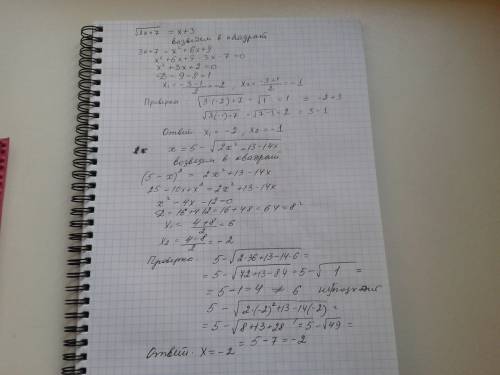 √3x+7 = x+3
возведем в квадрат
3x+7 = x²+6x+9
x²+6x+9-3x-7=0
x²+3x+2=0
D=9-8=1
x₁=(-3-1)/2=-2 x₂=(-3+1)/2=-1
Проверка √3·(-2)+7 = √1 = 1 = -2+3
√3(-1)+7 = √7-3=2 = 3-1
Ответ x₁=-2, x₂=-1
x=5-√2x²+13-14x
возведем в квадрат
(5-x)²=2x²+13-14x
25-10x+x²=2x²+13-14x
x²-4x-12=0
D=16+4·12=16+48=64=8²
x₁=(4+8)/2=6
x₂=(4-8)/2=-2
Проверка 5-√2·36+13-14·6=
=5-√72+13-84=5-√1=
=5-1=4≠6 не подходит
5-√2·(-2)²+13-14(-2)=
=5-√8+13+28=5-√49=
=5-7=-2
Ответ. X=-2